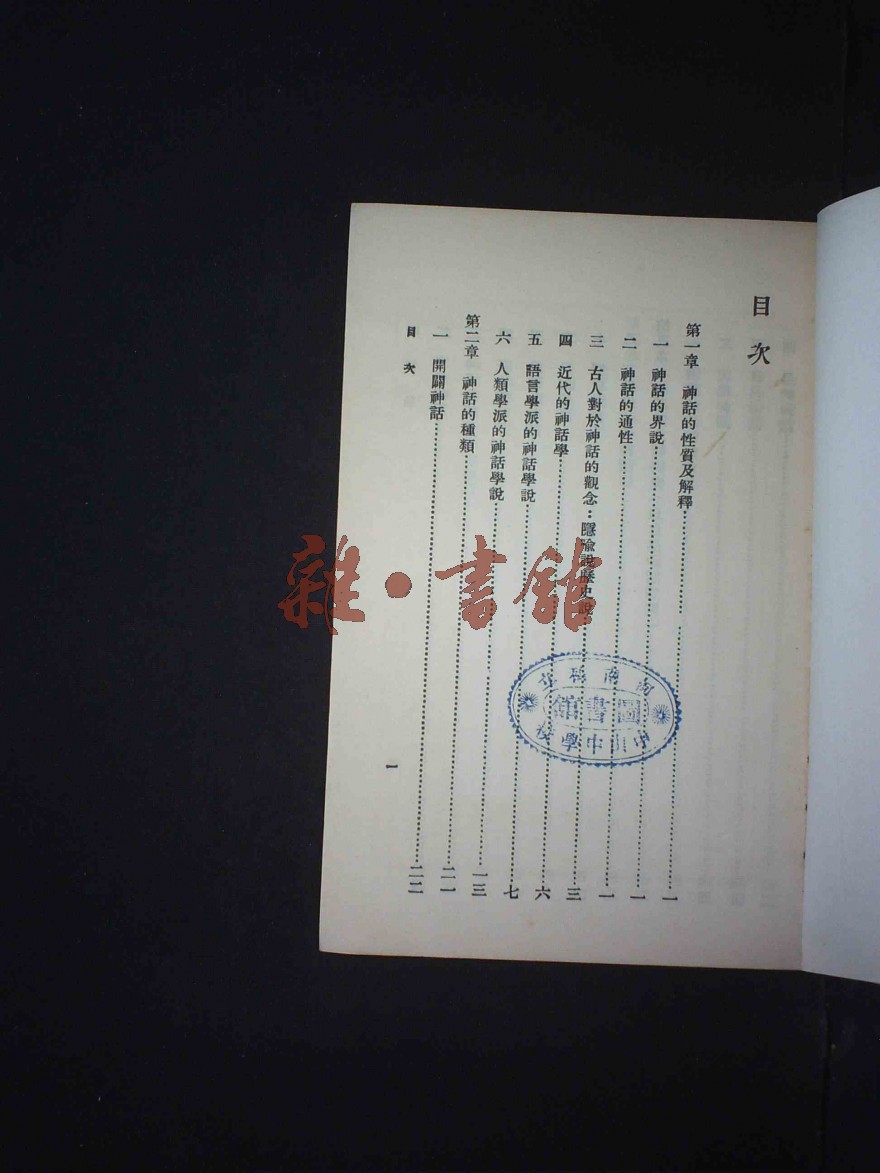 目次
第一章 神話的性質及解釋……一
一 神話的界說……一
二 神話的通性……一
三 古人對於神話的觀念：隱喻說歷史說……三
四 近代的神話學……六
五 語言學派的神話學說……七
六 人類學派的神話學說……一三
第二章 神話的種類……二一
一 開闢神話……二二
目次
一
河南 立
圖書館
中山中學校
雜·書館